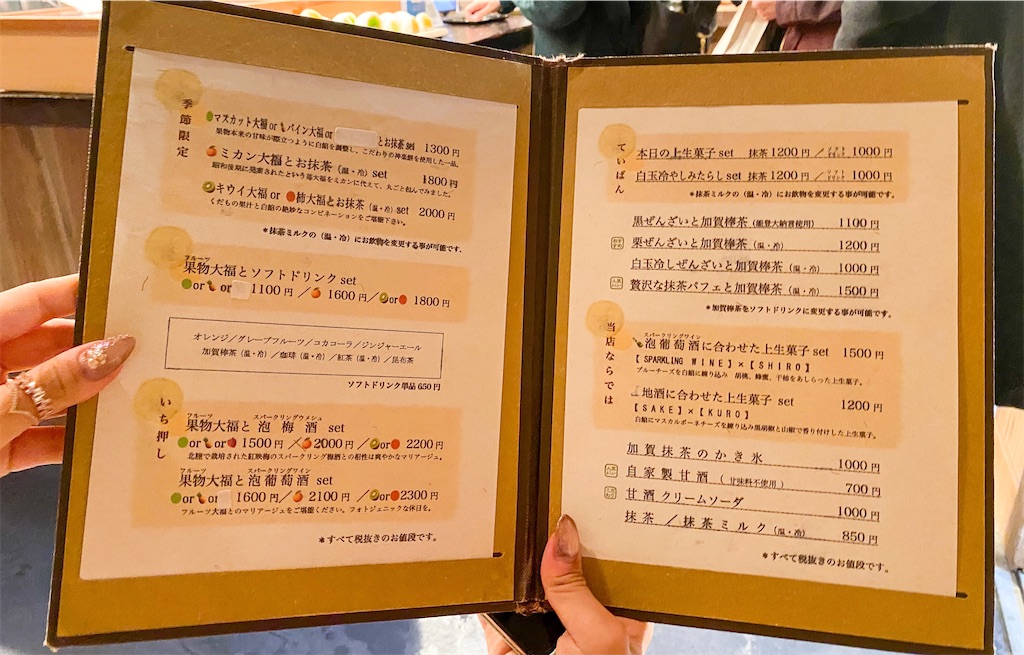 季節限定
マスカット大福 or パイン大福 or とお抹茶 set 1300円
果物本来の甘味が際立つように白餡を調整し、こだわりの神楽餅を使用した一品。
ミカン大福とお抹茶（温・冷）set 1800円
昭和後期に発案されたという苺大福をミカンに代えて、丸ごと包んでみました。
キウイ大福 or 柿大福とお抹茶（温・冷）set 2000円
くだもの果汁と白餡の絶妙なコンビネーションをご堪能下さい。
＊抹茶ミルクの（温・冷）にお飲物を変更する事が可能です。
フルーツ
果物大福とソフトドリンク set
or or 1100円／ 1600円／ or 1800円
オレンジ／グレープフルーツ／コカコーラ／ジンジャーエール
加賀棒茶（温・冷）／珈琲（温・冷）／紅茶（温・冷）／昆布茶
ソフトドリンク単品 650円
いち押し
フルーツ スパークリングウメシュ
果物大福と泡梅酒 set
or or 1500円／ 2000円／ or 2200円
北陸で栽培された紅映梅のスパークリング梅酒との相性は爽やかなマリアージュ。
フルーツ スパークリングワイン
果物大福と泡葡萄酒 set
or or 1600円／ 2100円／ or 2300円
フルーツ大福とのマリアージュをご堪能ください。フォトジェニックな休日を。
＊すべて税抜きのお値段です。
ていばん
本日の上生菓子 set 抹茶 1200円／ 1000円
白玉冷やしみたらし set 抹茶 1200円／ 1000円
＊抹茶ミルクの（温・冷）にお飲物を変更する事が可能です。
黒ぜんざいと加賀棒茶（能登大納言使用） 1100円
栗ぜんざいと加賀棒茶（温・冷） 1200円
白玉冷しぜんざいと加賀棒茶（温・冷） 1000円
贅沢な抹茶パフェと加賀棒茶（温・冷） 1500円
＊加賀棒茶をソフトドリンクに変更する事が可能です。
当店ならでは
スパークリングワイン
泡葡萄酒に合わせた上生菓子 set 1500円
【SPARKLING WINE】×【SHIRO】
ブルーチーズを白餡に練り込み 胡桃、蜂蜜、干柿をあしらった上生菓子。
地酒に合わせた上生菓子 set 1200円
【SAKE】×【KURO】
白餡にマスカルポーネチーズを練り込み黒胡椒と山椒で香り付けした上生菓子。
加賀抹茶のかき氷 1000円
自家製甘酒（甘味料不使用） 700円
甘酒クリームソーダ 1000円
抹茶／抹茶ミルク（温・冷） 850円
＊すべて税抜きのお値段です。